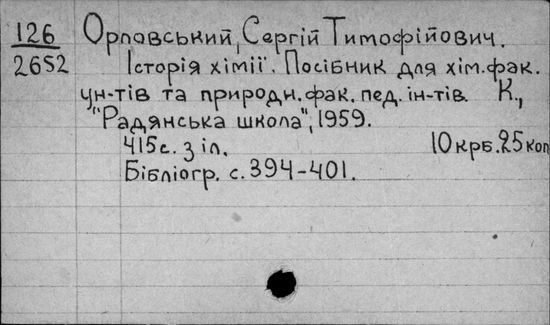 126 Орловський, Сергій Тимофійович.
2652 Історія хімії. Посібник для хім. фак.
ун-тів та природн. фак. пед. ін-тів. К.,
"Радянська школа", 1959.
415 с. з іл. 10 крб. 25 коп
Бібліогр. с. 394-401.